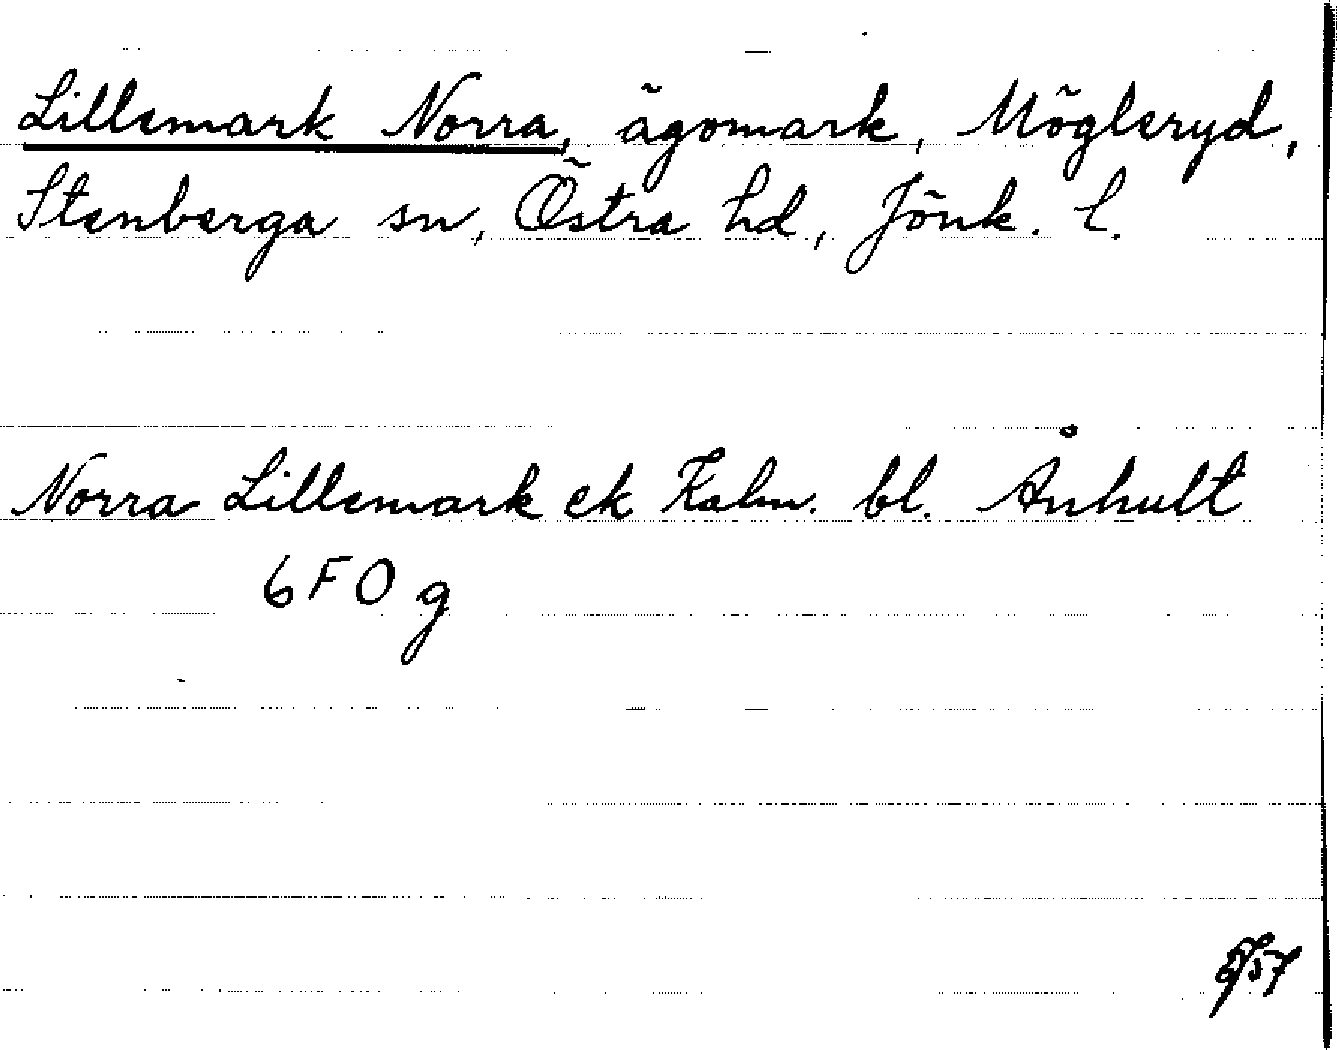 Lillemark Norra, ägomark, Mögleryd,
Stenberga sn, Östra hd, Jönk. l.
Norra Lillemark ek Kalm. bl. Ånhult
6 F O g